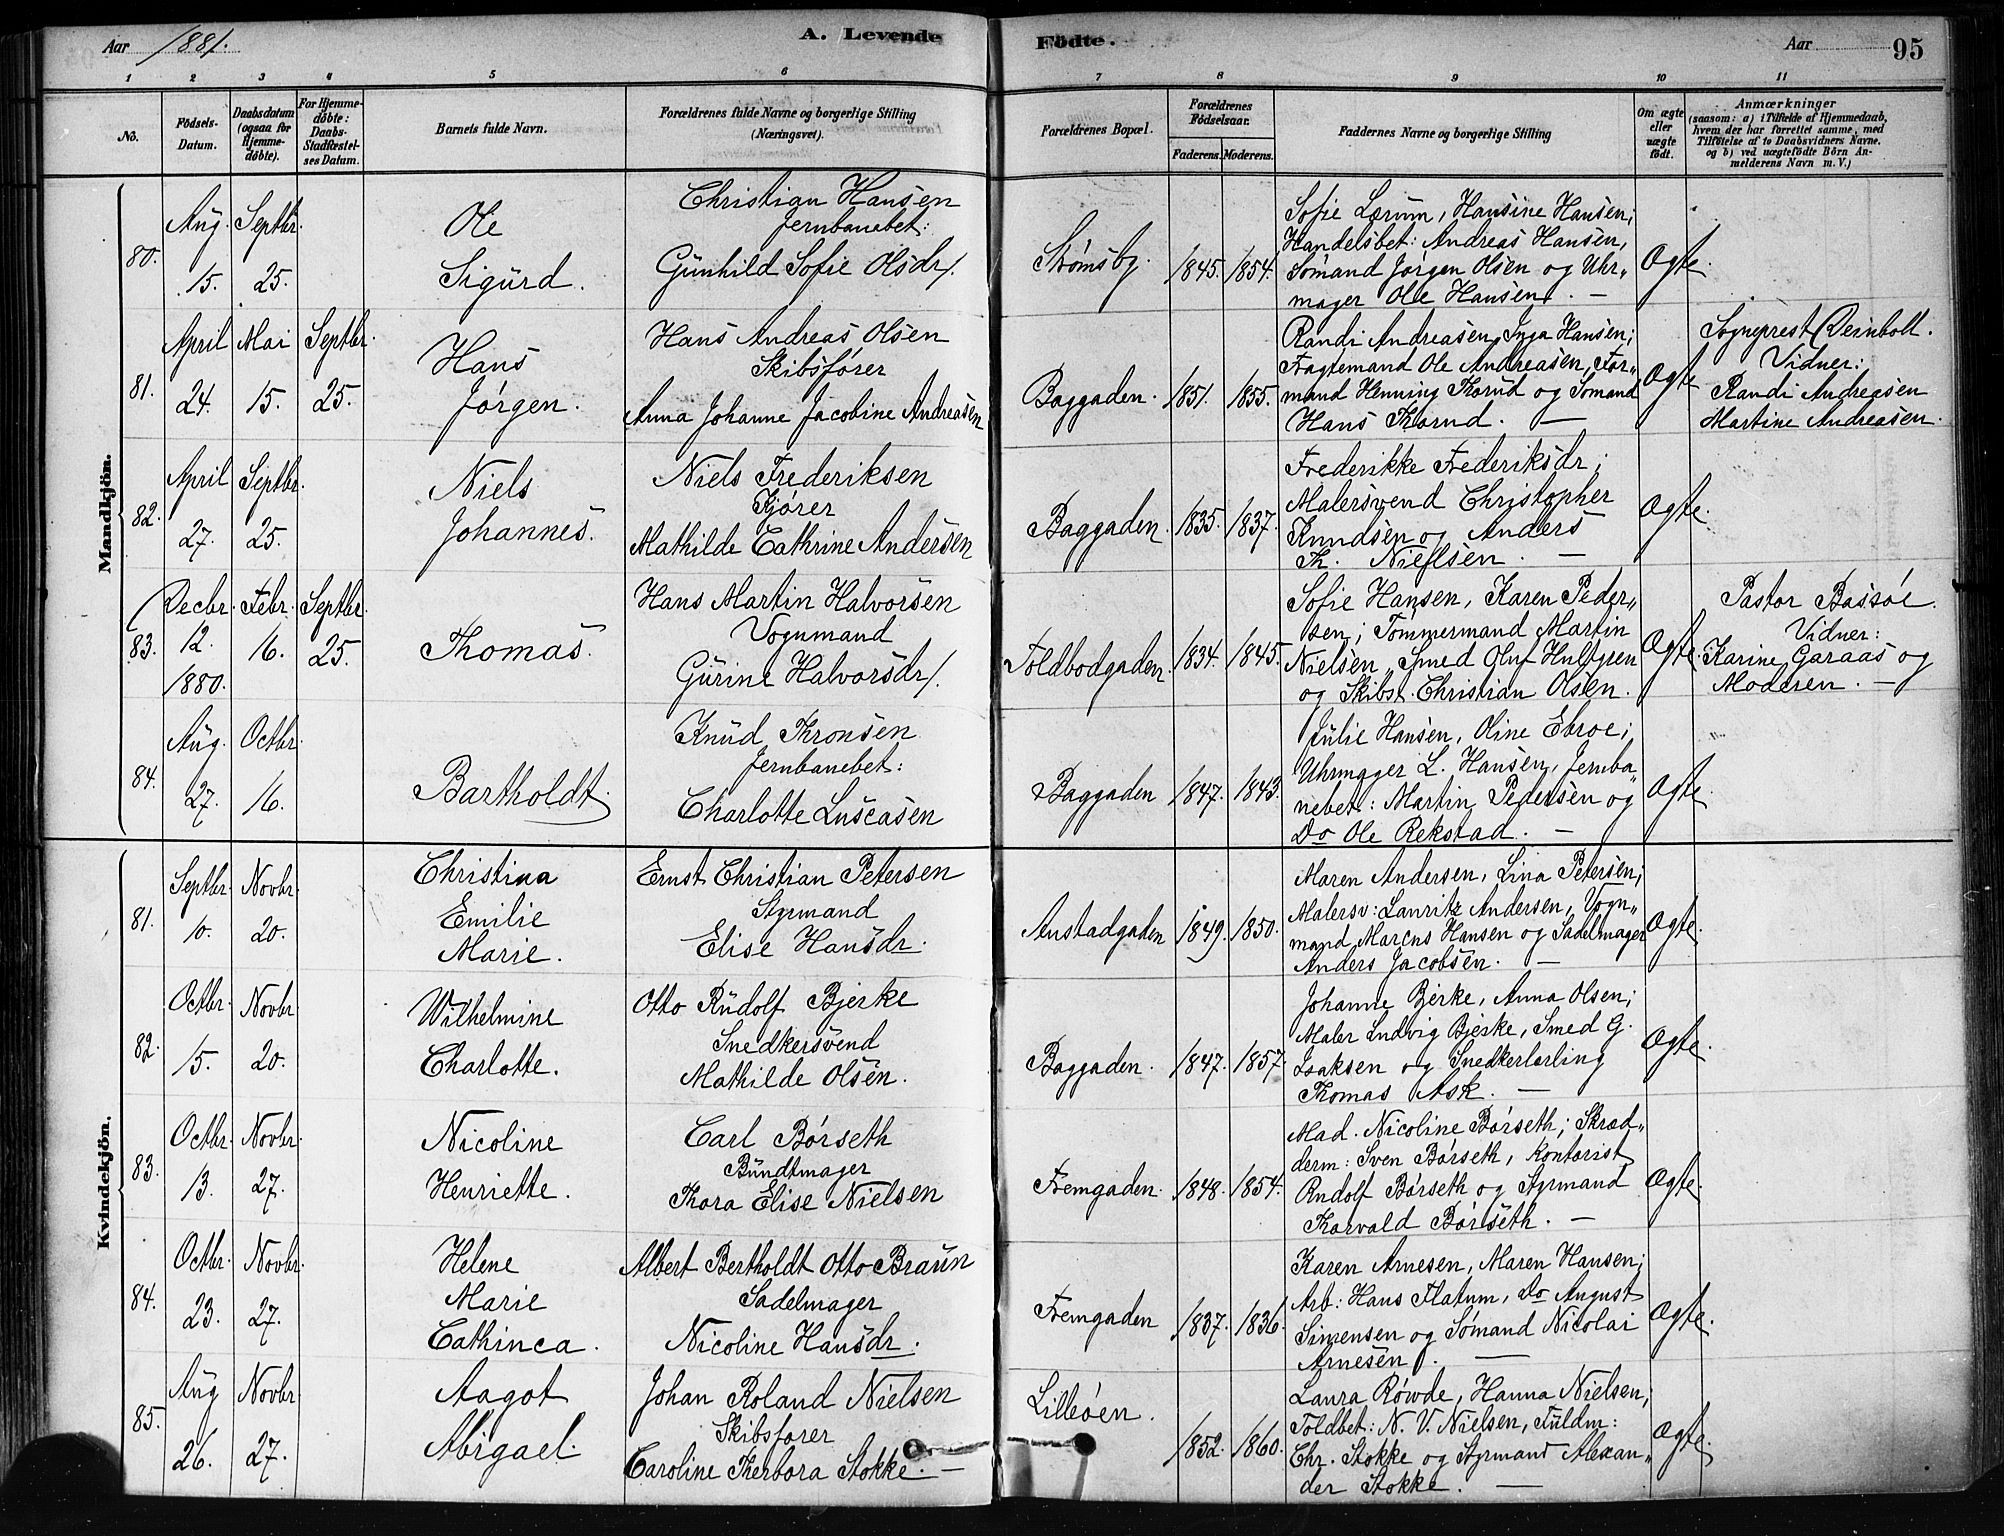 Aar 1881.
A. Levende Födte.
Aar 95
1 2 3 4 5 6 7 8 9 10 11
No.
Födsels-Datum.
Daabsdatum (ogsaa for Hjemme-döbte).
For Hjemme-döbte: Daabs-Stadfæstel-ses Datum.
Barnets fulde Navn.
Forældrenes fulde Navne og borgerlige Stilling (Næringsvei).
Forældrenes Bopæl.
Forældrenes Födselsaar.
Faderens. Moderens.
Faddernes Navne og borgerlige Stilling
Om ægte eller uægte födt.
Anmærkninger
(saasom: a) i Tilfælde af Hjemmedaab,
hvem der har forrettet samme, med
Tilföielse af to Daabsvidners Navne,
og b) ved uægtefödte Börn An-
melderens Navn m. V.)
Mandkjön.
80.
Aug. 15.
Septbr. 25.
Ole
Sigurd.
Christian Hansen
Jernbanebet:
Gunhild Sofie Olsdr/.
Strømsby.
1845. 1854.
Sofie Lærum, Hansine Hansen;
Handelsbet: Andreas Hansen,
Sømand Jørgen Olsen og Uhr„
mager Ole Hansen. —
Ægte.
81.
April 24.
Mai 15.
Septbr. 25.
Hans
Jørgen.
Hans Andreas Olsen
Skibsfører
Anna Johanne Jacobine Andreasen
Baggaden.
1851. 1855.
Randi Andreasen, Inga Hansen;
Fragtemand Ole Andreasen, For„
mand Henning Thorud og Sømand
Hans Thorud. —
Ægte
Sogneprest Deinboll.
Vidner:
Randi Andreasen
Martine Andreasen.
82.
April 27.
Septbr. 25.
Niels
Johannes.
Niels Frederiksen
Kjører
Mathilde Cathrine Andersen
Baggaden.
1835. 1837.
Frederikke Frederiksdr;
Malersvend Christopher
Knudsen og Anders
Th. Nielsen. —
Ægte.
83.
Decbr. 12. 1880.
Febr. 16.
Septbr. 25.
Thomas.
Hans Martin Halvorsen
Vognmand
Gurine Halvorsdr/.
Toldbodgaden.
1834. 1845.
Sofie Hansen, Karen Peder„
sen; Tømmermand Martin
Nielsen, Smed Oluf Hultgren
og Skibst. Christian Olsen.
Ægte.
Pastor Bassøe.
Vidner:
Karine Garaas og
Moderen. —
84.
Aug. 27.
Octbr. 16.
Bartholdt.
Knud Thronsen
Jernbanebet:
Charlotte Luscasen
Baggaden
1847. 1843.
Julie Hansen, Oline Ebroe;
Uhrmager L. Hansen, Jernba„
nebet: Martin Pedersen og
Do Ole Rekstad. —
Ægte.
Kvindekjön.
81.
Septbr. 10.
Novbr. 20.
Christina
Emilie
Marie.
Ernst Christian Petersen
Styrmand
Elise Hansdr.
Anstadgaden
1849. 1850.
Maren Andersen, Lina Petersen;
Malersv: Lauritz Andersen, Vogn„
mand Marcus Hansen og Sadelmager
Anders Jacobsen. —
Ægte.
82.
Octbr. 15.
Novbr. 20.
Wilhelmine
Charlotte.
Otto Rudolf Bjerke
Snedkersvend
Mathilde Olsen.
Baggaden.
1847. 1857.
Johanne Bjerke, Anna Olsen;
Maler Ludvig Bjerke, Smed G.
Isaksen og Snedkerlærling
Thomas Ask. —
Ægte.
83.
Octbr. 13.
Novbr. 27.
Nicoline
Henriette.
Carl Børseth
Bundtmager
Thora Elise Nielsen
Fremgaden.
1848. 1854.
Mad. Nicoline Børseth; Skræd„
derm: Sven Børseth, Kontorist
Rudolf Børseth og Styrmand
Thorvald Børseth. —
Ægte.
84.
Octbr. 23.
Novbr. 27.
Helene
Marie
Cathinca.
Albert Bertholdt Otto Braun
Sadelmager
Nicoline Hansdr.
Fremgaden
1837. 1836.
Karen Arnesen, Maren Hansen;
Arb: Hans Flatum, Do August
Simensen og Sømand Nicolai
Arnesen. —
Ægte.
85.
Aug 26.
Novbr 27.
Aagot
Abigael.
Johan Roland Nielsen
Skibsfører
Caroline Therbora Stokke. —
Lilleøen.
1852. 1860.
Laura Røwde, Hanna Nielsen;
Toldbet: N. V. Nielsen, Fuldm:
Chr. Stokke og Styrmand Alexan„
der Stokke. —
Ægte.